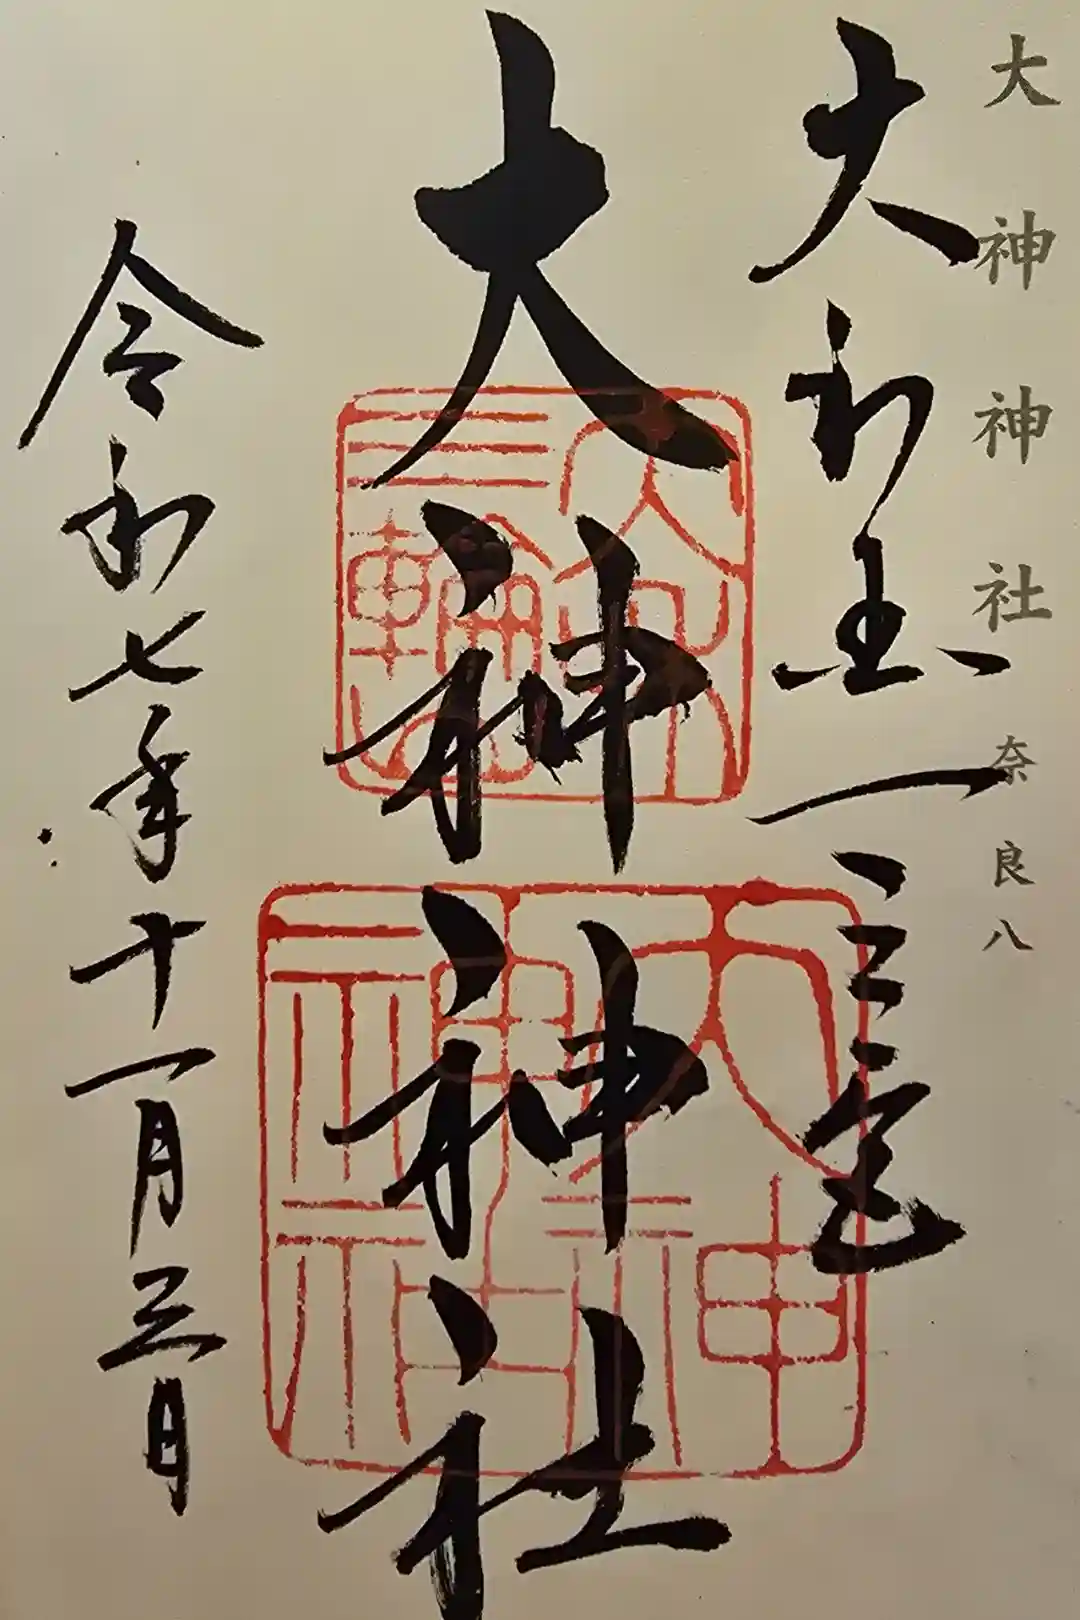 大神神社 奈良八
大和国一之宮
大神神社
大神
神社
令和七年十一月三日